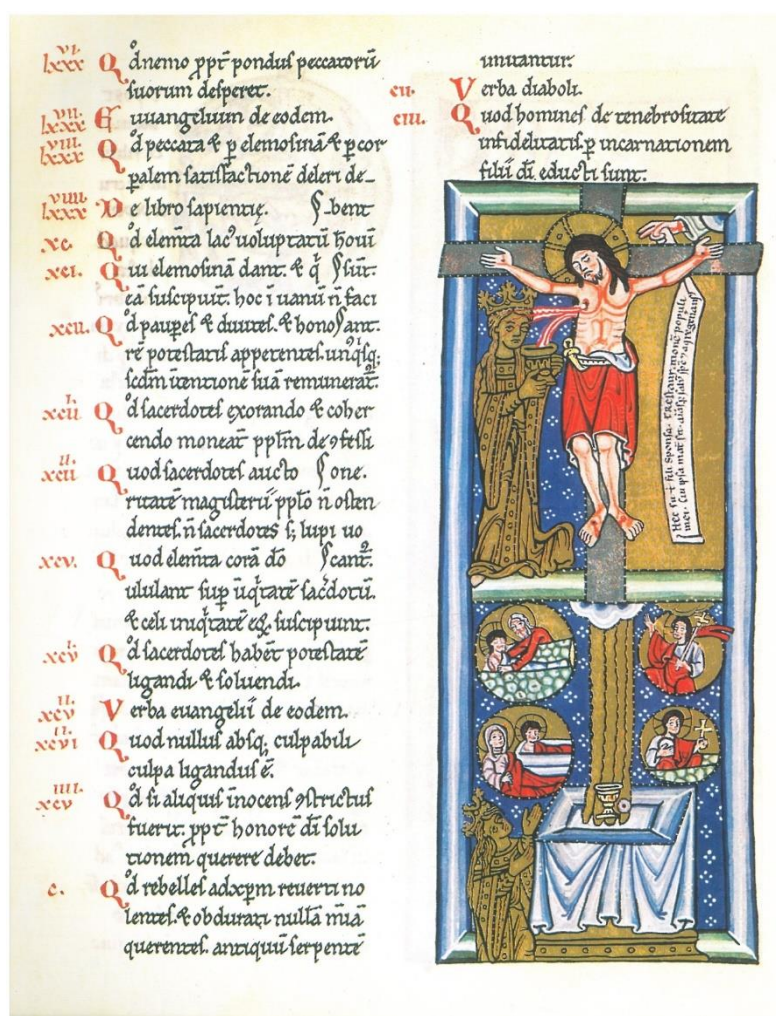 lxxxvi. Qd nemo ꝓpt̄ pondus peccatorū
suorum desperet.
lxxxvii. Euuangelium de eodem.
lxxxviii. Qd peccata & ꝑ elemosinā & ꝑ cor
palem satisfactionē deleri de_
lxxxviiii. De libro sapientie. bent
xc. Qd elem̄ta lac'
xci. Qui elemosinā dant. & q̇ sūt.
eā suscipiūt. hoc ī uanū n̄ faci
xcii. Qd paupes & diuites. & hono ant.
rē potestatis appetentes. unqsq;
scdm ītentionē suā remunerat̄.
xcii.i. Qd sacerdotes exorando & coher
cendo moneāt pplm de ꝯfessi
xcii.ii. Quod sacerdotes aucto one.
ritatē magisterii pplo n̄ osten
dentes. n̄ sacerdotes s; lupi uo
xcv. Quod elem̄ta corā dō cant̄.
ululant sup iniqtatē sac̄dotū.
& celi iniqtatē eoꝝ suscipiunt.
xcvi. Qd sacerdotes habēt potestatē
ligandi & soluendi.
xcvii. Verba euangelii de eodem.
xcviii. Quod nullus absq; culpabili
culpa ligandus ē.
xcviiii. Qd si aliquis īnocens ꝯstrictus
fuerit. ꝓpt̄ honorē dī solu
tionem querere debet.
c. Qd rebelles ad xpm reuerti no
lentes. & obdurati nullā mīā
querentes. antiquū serpentē
imitantur.
cii. Verba diaboli.
ciii. Quod homines de tenebrositate
infidelitatis. ꝑ incarnationem
filii dī. educti sunt.
Hec fili sponsa